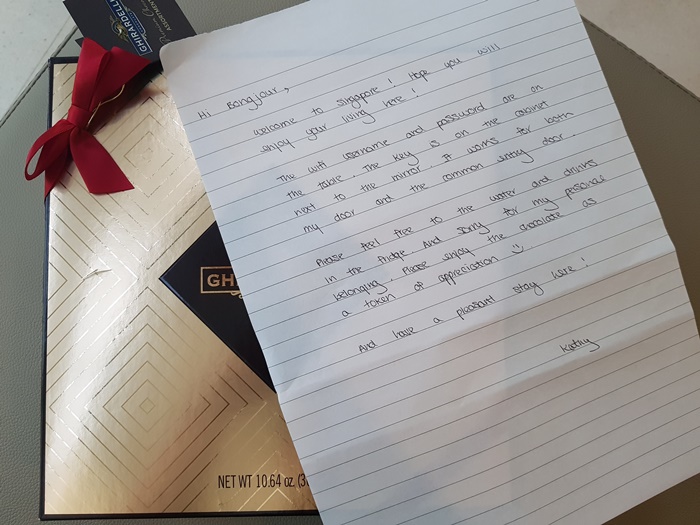 GHIRARDELLI
ASSORTMENT
Hi Bangjour,
welcome to singapore! Hope you will
enjoy your living here!
The wifi username and password are on
the table. The key is on the cabinet
next to the mirror. It works for both
my door and the common entry door.
Please feel free to the water and drinks
in the fridge. And sorry for my personal
belonging. Please enjoy the chocolate as
a token of appreciation ☺
And have a pleasant stay here!
Kathy
GH
NET WT 10.64 oz. (3